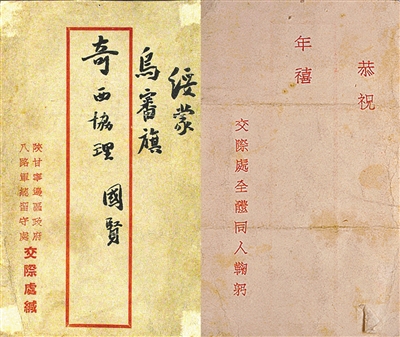 綏蒙
烏審旗
奇西協理 國賢
陝甘寧邊區政府
八路軍總留守處
交際處緘
恭祝
年禧
交際處全體同人鞠躬